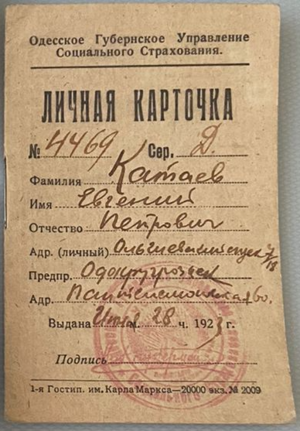 Одесское Губернское Управление
Социального Страхования.
ЛИЧНАЯ КАРТОЧКА
№ 4469 Сер. Д.
Фамилия Катаев
Имя Евгений
Отчество Петрович
Адр. (личный)
Предпр.
Адр. Пантелеймоновская 60.
Выдана 28 ч. 1923 г.
Подпись
1-я Гостип. им. Карла Маркса—20000 экз. № 2009